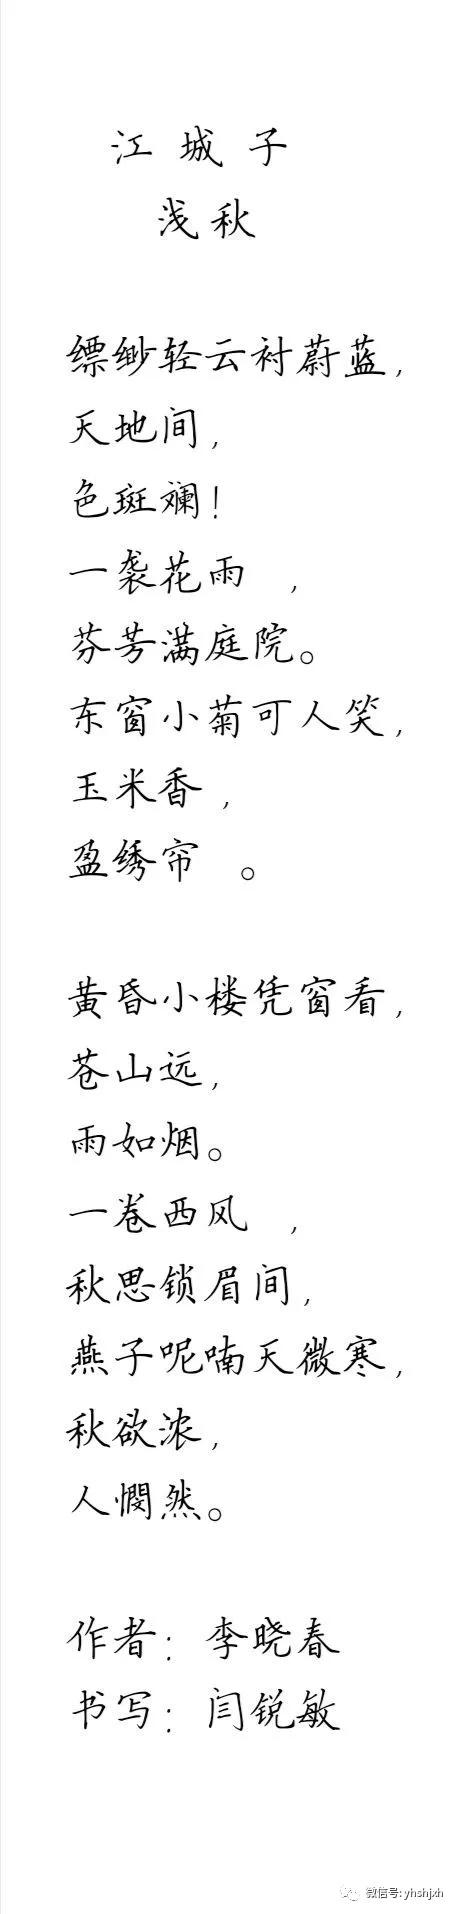 江城子
浅秋
缥缈轻云衬蔚蓝，
天地间，
色斑斓！
一袭花雨，
芬芳满庭院。
东窗小菊可人笑，
玉米香，
盈绣帘。
黄昏小楼凭窗看，
苍山远，
雨如烟。
一卷西风，
秋思锁眉间，
燕子呢喃天微寒，
秋欲浓，
人憫然。
作者：李晓春
书写：闫锐敏
微信号: yhshjxh